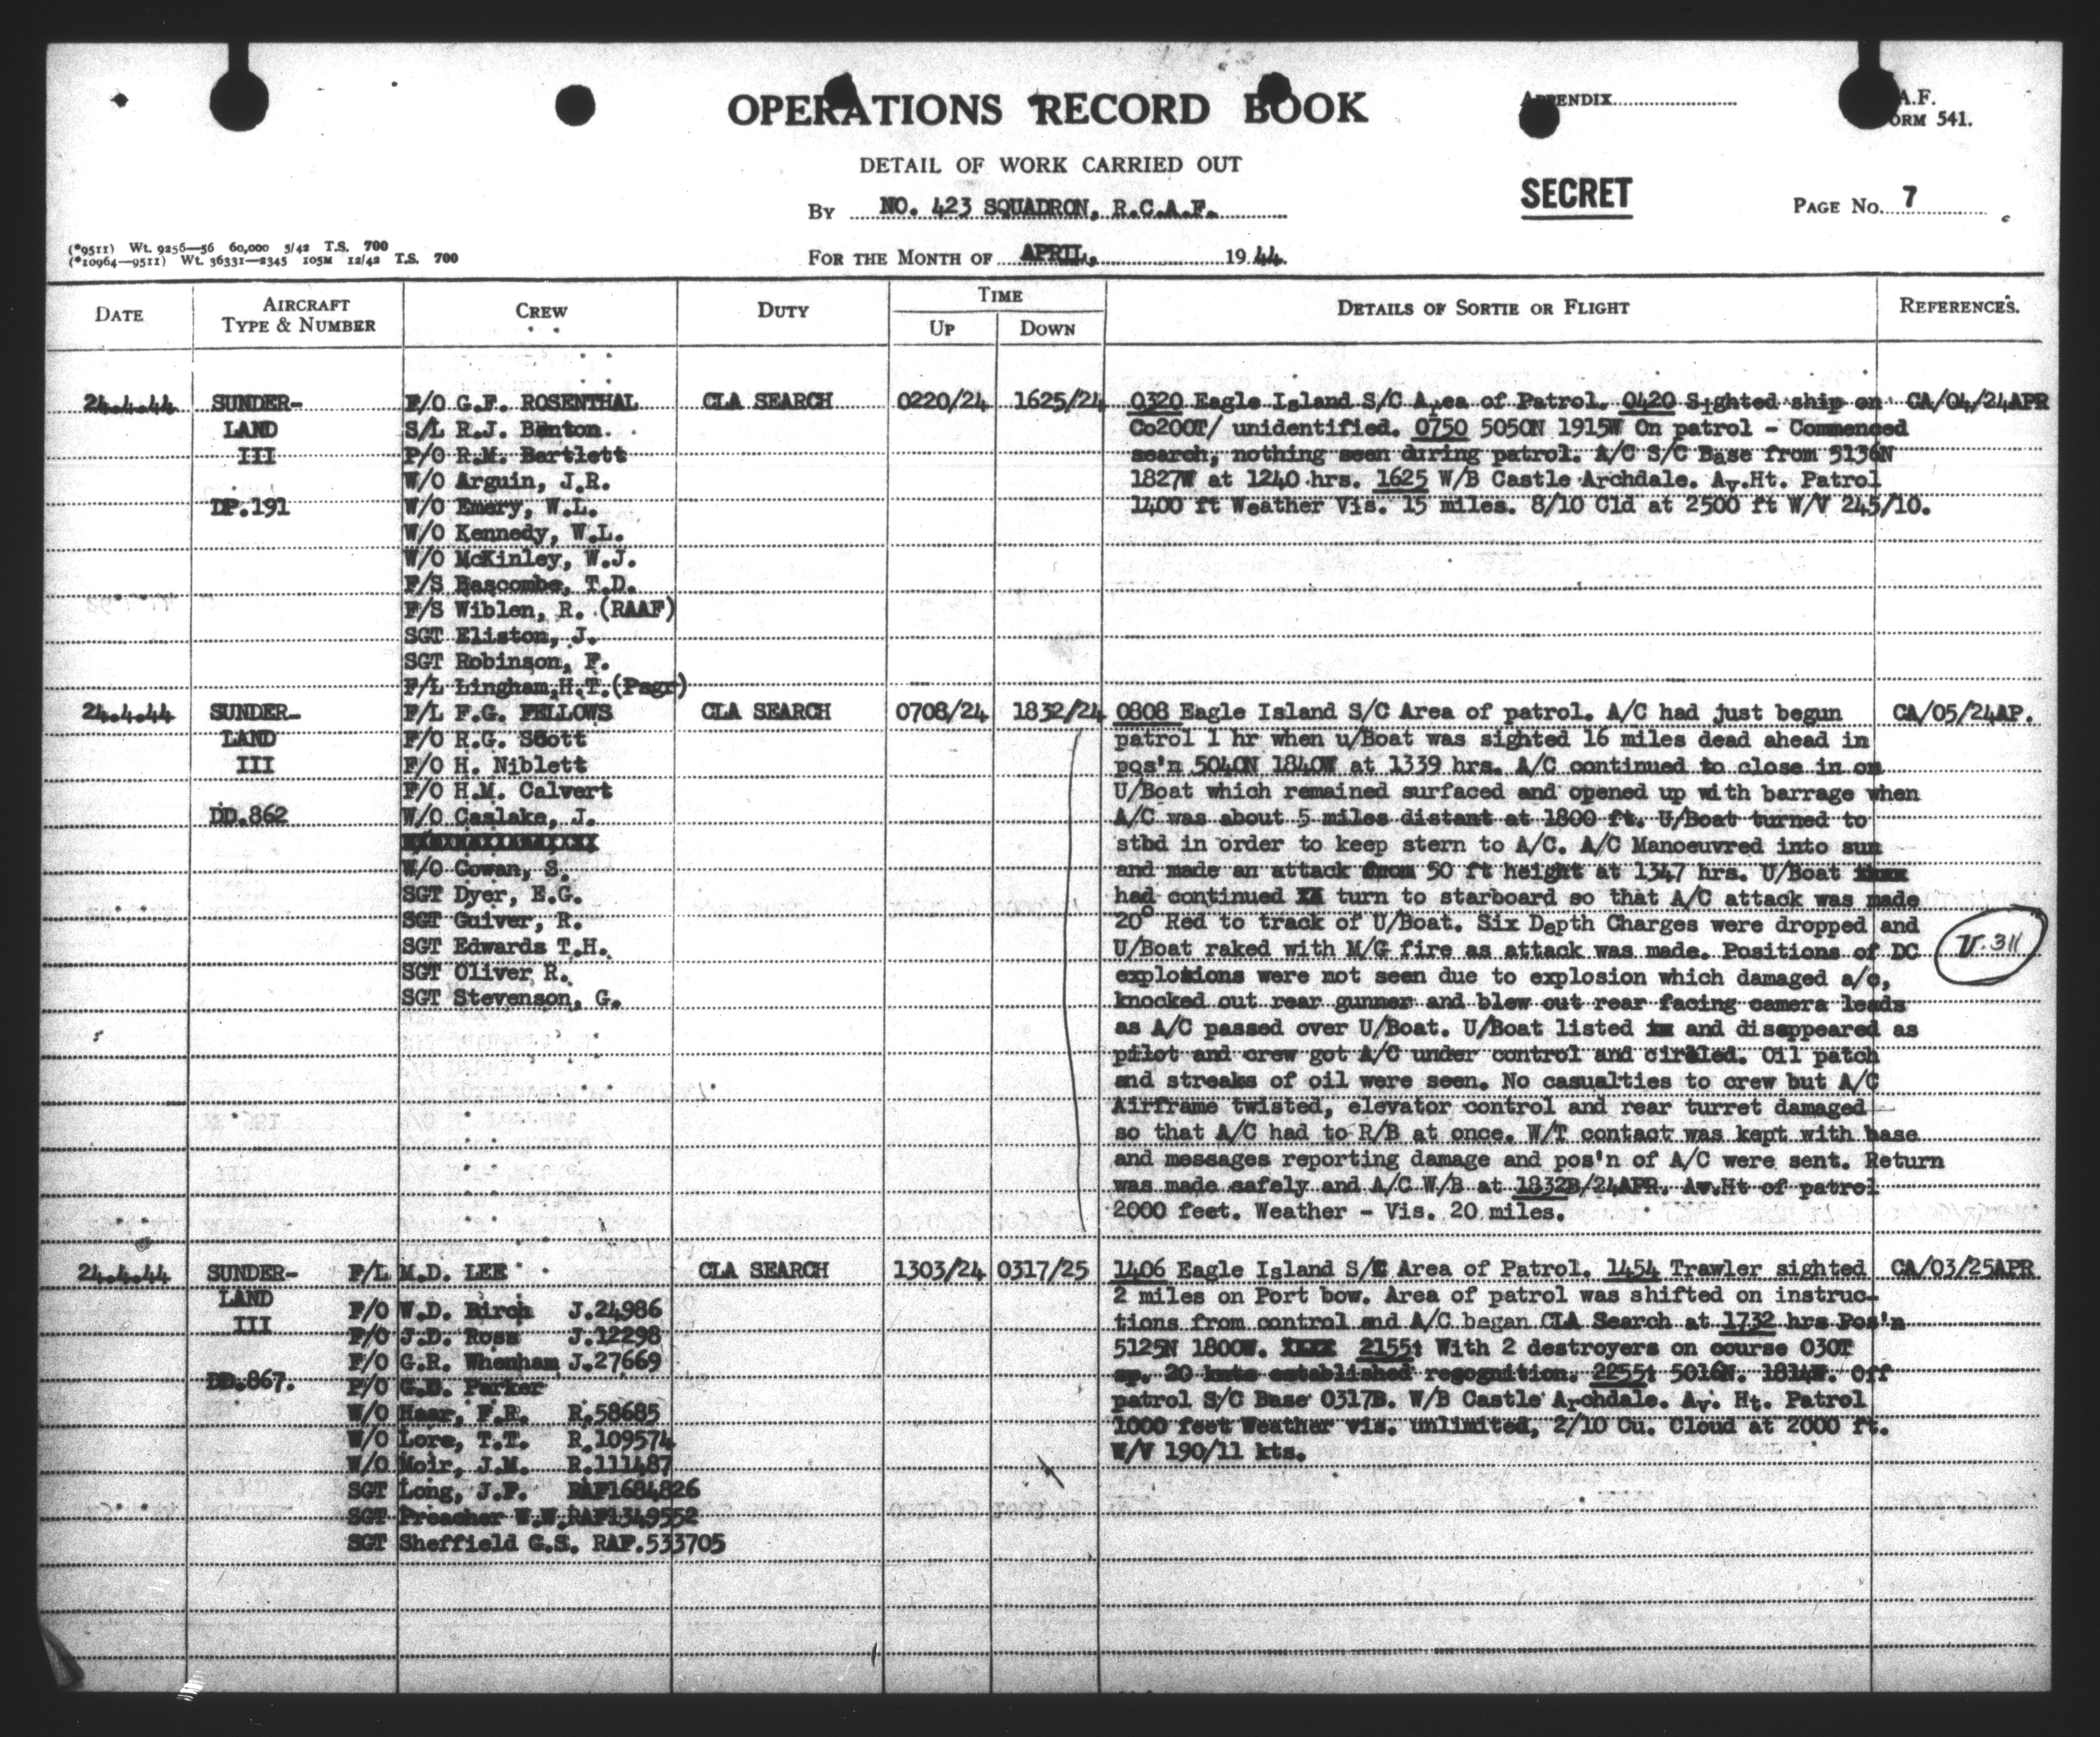 OPERATIONS RECORD BOOK
APPENDIX
A.F.
ORM 541.
DETAIL OF WORK CARRIED OUT
SECRET
BY NO. 423 SQUADRON, R.C.A.F.
PAGE No. 7
(*9511) Wt. 9256—56 60,000 5/42 T.S. 700
(*10964—9511) Wt. 36331—2345 105M 12/42 T.S. 700
FOR THE MONTH OF APRIL, 1944.
DATE
AIRCRAFT
TYPE & NUMBER
CREW
DUTY
TIME
UP
DOWN
DETAILS OF SORTIE OR FLIGHT
REFERENCES.
24.4.44
SUNDER-
LAND
III
DP.191
F/O G.F. ROSENTHAL
S/L R.J. Benton.
P/O R.M. Bartlett
W/O Arguin, J.R.
W/O Emery, W.L.
W/O Kennedy, W.L.
W/O McKinley, W.J.
F/S Bascombe, T.D.
F/S Wiblen, R. (RAAF)
SGT Eliston, J.
SGT Robinson, F.
F/L Lingham,H.T.(Psgr)
CLA SEARCH
0220/24
1625/24
0320 Eagle Island S/C Area of Patrol. 0420 Sighted ship on
Co200T/ unidentified. 0750 5050N 1915W On patrol - Commenced
search, nothing seen during patrol. A/C S/C Base from 5136N
1827W at 1240 hrs. 1625 W/B Castle Archdale. Av.Ht. Patrol
1400 ft Weather Vis. 15 miles. 8/10 Cld at 2500 ft W/V 245/10.
CA/04/24APR
24.4.44
SUNDER-
LAND
III
DD.862
F/L F.G. FELLOWS
F/O R.G. Scott
F/O H. Niblett
F/O H.M. Calvert
W/O Caslake, J.
W/O Cowan, S.
SGT Dyer, E.G.
SGT Guiver, R.
SGT Edwards T.H.
SGT Oliver R.
SGT Stevenson, G.
CLA SEARCH
0708/24
1832/24
0808 Eagle Island S/C Area of patrol. A/C had just begun
patrol 1 hr when u/Boat was sighted 16 miles dead ahead in
pos'n 5040N 1840W at 1339 hrs. A/C continued to close in on
U/Boat which remained surfaced and opened up with barrage when
A/C was about 5 miles distant at 1800 ft. U/Boat turned to
stbd in order to keep stern to A/C. A/C Manoeuvred into sun
and made an attack from 50 ft height at 1347 hrs. U/Boat
had continued turn to starboard so that A/C attack was made
20° Red to track of U/Boat. Six Depth Charges were dropped and
U/Boat raked with M/G fire as attack was made. Positions of DC
explosions were not seen due to explosion which damaged a/c,
knocked out rear gunner and blew out rear facing camera leads
as A/C passed over U/Boat. U/Boat listed and disappeared as
pilot and crew got A/C under control and circled. Oil patch
and streaks of oil were seen. No casualties to crew but A/C
Airframe twisted, elevator control and rear turret damaged
so that A/C had to R/B at once. W/T contact was kept with base
and messages reporting damage and pos'n of A/C were sent. Return
was made safely and A/C W/B at 1832B/24APR. Av.Ht of patrol
2000 feet. Weather - Vis. 20 miles.
CA/05/24AP.
U.311
24.4.44
SUNDER-
LAND
III
DD.867.
F/L M.D. LEE
F/O W.D. Birch J.24986
F/O J.D. Ross J.12298
F/O G.R. Whenham J.27669
P/O G.D. Parker
W/O Haar, F.R. R.58685
W/O Lore, T.T. R.109574
W/O Moir, J.M. R.111487
SGT Long, J.F. RAF1684826
SGT Preacher W.W.RAF1349552
SGT Sheffield G.S. RAF.533705
CLA SEARCH
1303/24
0317/25
1406 Eagle Island S/C Area of Patrol. 1454 Trawler sighted
2 miles on Port bow. Area of patrol was shifted on instruc-
tions from control and A/C began CLA Search at 1732 hrs Pos'n
5125N 1800W. 2155: With 2 destroyers on course 030T
sp. 20 knts established recognition. 2255: 5016N. 1814W. Off
patrol S/C Base 0317B. W/B Castle Archdale. Av. Ht. Patrol
1000 feet Weather vis. unlimited, 2/10 Cu. Cloud at 2000 ft.
W/V 190/11 kts.
CA/03/25APR